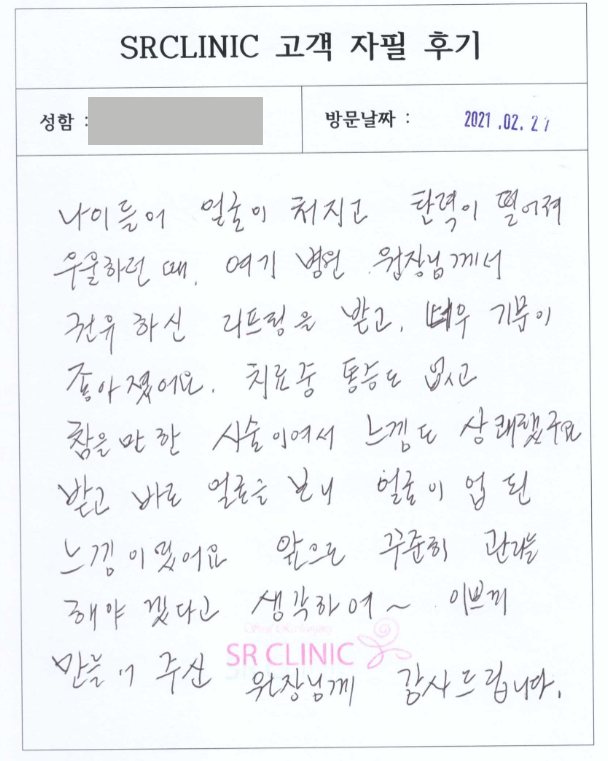 SRCLINIC 고객 자필 후기
성함 :
방문날짜 : 2021.02.27
나이들어 얼굴이 쳐지고 탄력이 떨어져
우울하던 때, 여기 병원 원장님께서
권유 하신 리프팅을 받고, 매우 기분이
좋아졌어요. 치료중 통증도 없고
참을만 한 시술이여서 느낌도 상쾌했구요
받고 바로 얼굴을 보니 얼굴이 업 된
느낌이였어요 앞으로 꾸준히 관리를
해야 겠다고 생각하여~ 이쁘게
만들어 주신 원장님께 감사드립니다.
SR CLINIC